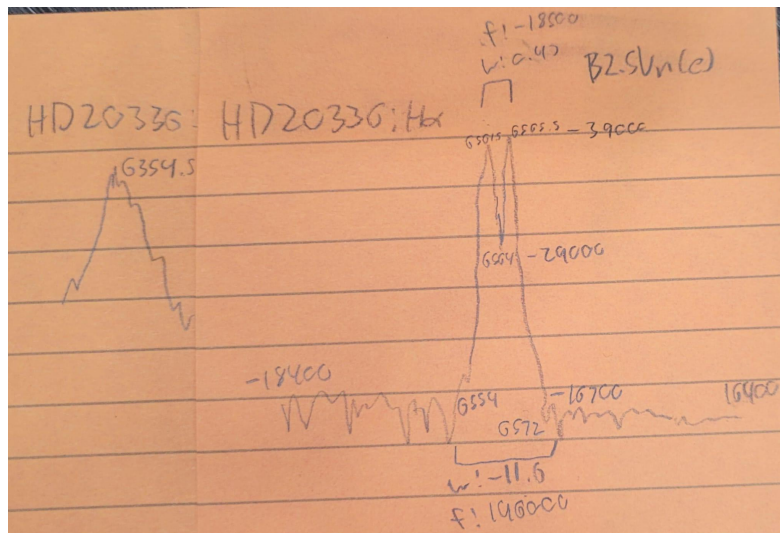 f:-18500
w:0.42
B2.5Vn(e)
HD20336:
HD20336:Hα
6561.5
6565.5
-39000
6354.5
6564
-29000
-18400
6554
-16700
16400
6572
w:-11.6
f:146000